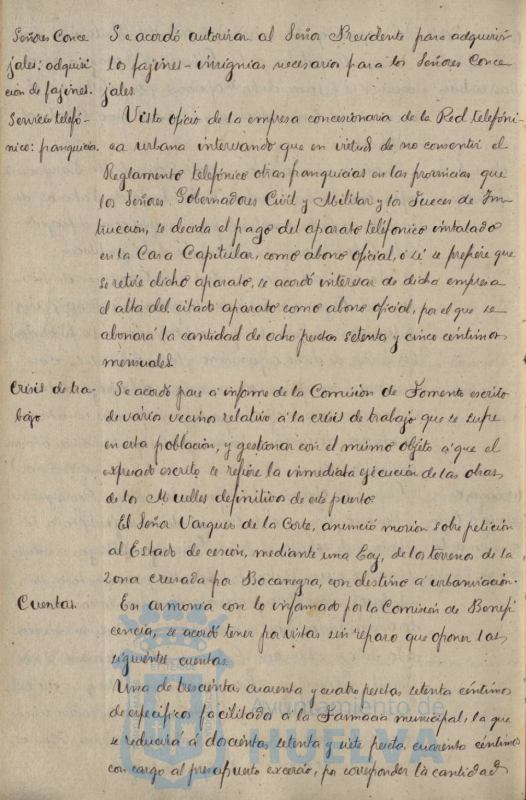 Señores Conce
jales: adquisi
ción de fajines.
Se acordó autorizar al Señor Presidente para adquirir
los fajines-insignias necesarios para los Señores Conce
jales.
Servicio telefó-
nico: franquicia.
Visto oficio de la empresa concesionaria de la Red telefóni-
ca urbana interesando que en virtud de no consentir el
Reglamento telefónico otras franquicias en las provincias que
los Señores Gobernadores Civil y Militar y los Jueces de Ins
trucción, se decida el pago del aparato telefónico instalado
en la Casa Capitular, como abono oficial, ó si se prefiere que
se retire dicho aparato, se acordó interesar de dicha empresa
el alta del citado aparato como abono oficial, por el que se
abonará la cantidad de ocho pesetas setenta y cinco céntimos
mensuales.
Crisis de tra-
bajo
Se acordó pase á informe de la Comisión de Fomento escrito
de varios vecinos relativo á la crisis de trabajo que se sufre
en esta población, y gestionar con el mismo objeto á que el
expresado escrito se refiere la inmediata ejecución de las obras
de los Muelles definitivos de este puerto.
El Señor Vazquez de la Corte, anunció moción sobre petición
al Estado de cesión, mediante una Ley, de los terrenos de la
Zona cruzada por Bocanegra, con destino á urbanización.
Cuentas.
En armonia con lo informado por la Comisión de Benefi
cencia, se acordó tener por vistas sin reparo que oponer las
siguientes cuentas.
Una de trescientas cuarenta y cuatro pesetas setenta céntimos
de específicos facilitados á la Farmacia municipal, la que
se reducirá á doscientas setenta y siete pesetas, cuarenta céntimos
con cargo al presupuesto por corresponder la cantidad
Ayuntamiento de
HUELVA